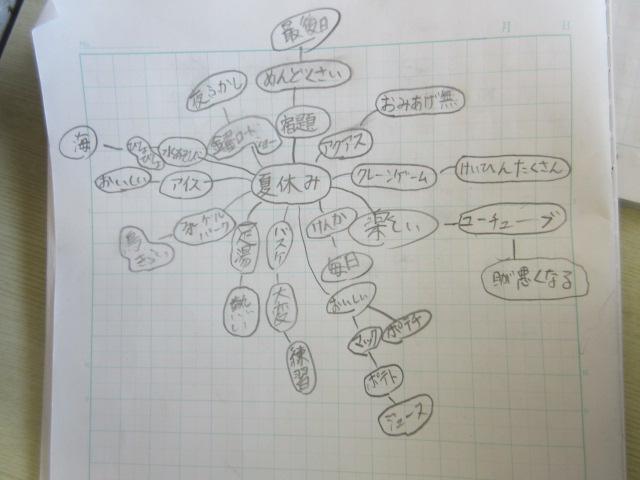 月 日
最後日
めんどくさい
夜ふかし
おみあげ無
宿題
アクアス
海
びちょびちょ
水あそび
クレーンゲーム
けいひんたくさん
おいしい
アイス
夏休み
けんか
楽しい
ユーチューブ
パーク
足湯
バスケ
毎日
目が悪くなる
熱い
大変
おいしい
マック
ポテチ
練習
ポテト
ジュース